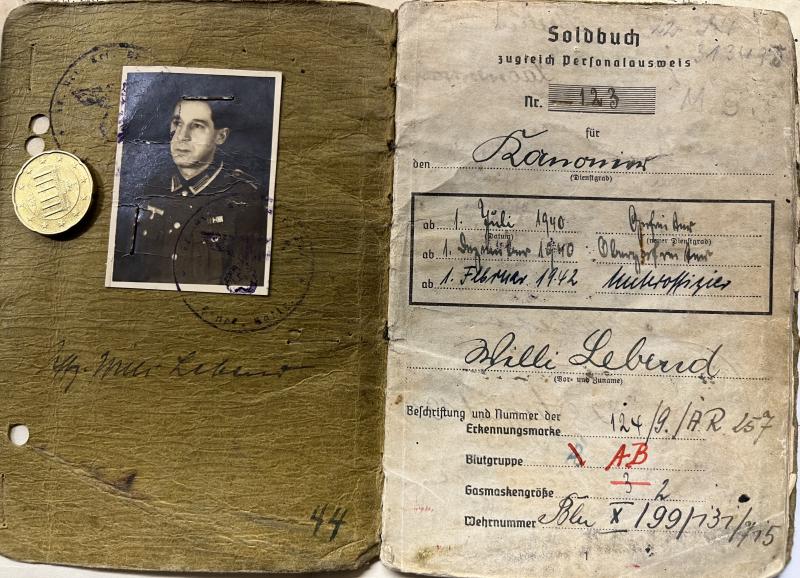 Willi Lebend
44
Soldbuch
zugleich Personalausweis
Nr. 123
für
den Kanonier
(Dienstgrad)
ab 1. Juli 1940 Gefreiter
(Datum) (neuer Dienstgrad)
ab 1. Dezember 1940 Obergefreiter
ab 1. Februar 1942 Unteroffizier
Willi Lebend
(Vor- und Zuname)
Beschriftung und Nummer der
Erkennungsmarke 124/9./AR 257
Blutgruppe AB
Gasmaskengröße 3 2
Wehrnummer Köln X/99/131/7/15
1